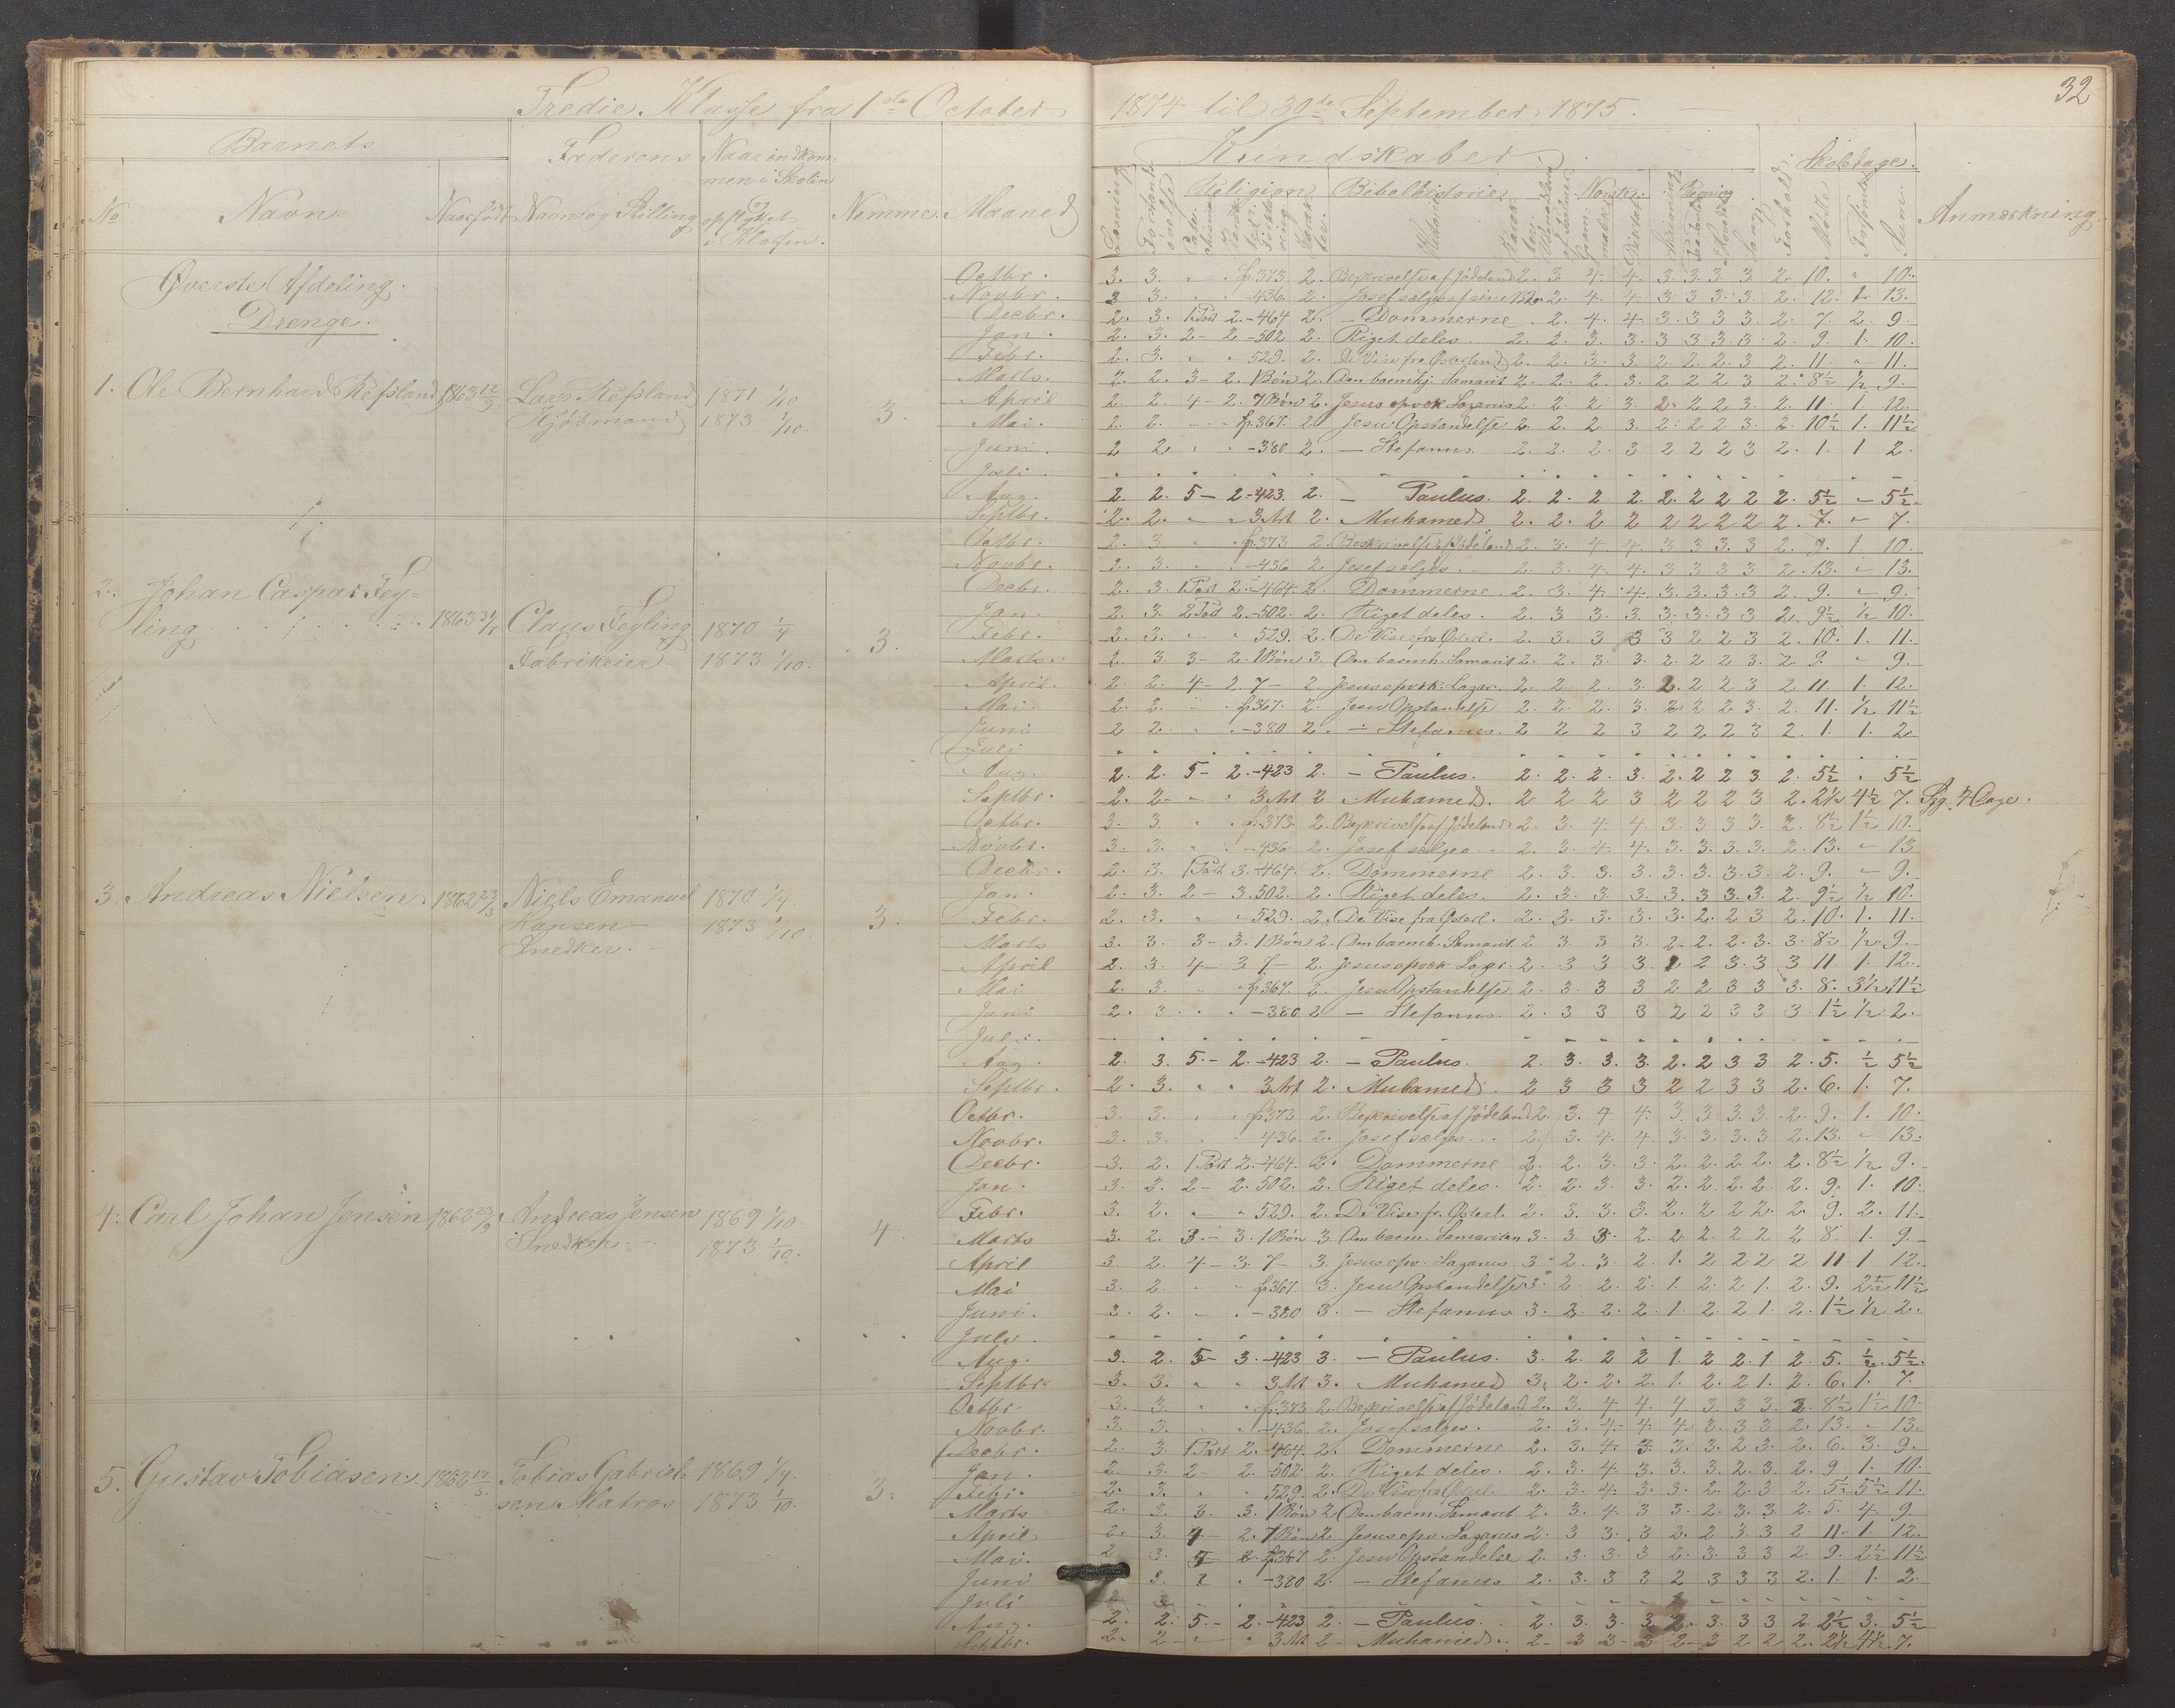 32
Tredie Klasse fra 1ste October 1874 til 30te September 1875.
Barnets
Faderens
Naar indkommen i Skolen og opflyttet i Klassen.
Kundskaber
Skoledage.
No
Navn.
Naar født
Navn og Stilling
Nemme.
Maaned
Religion
Bibelhistorie
Norsk.
Sang.
Forhold.
Møde
Forsømte
Sum.
Anmærkning.
Øverste Afdeling.
Drenge.
1. Ole Bernhard Refsland 1863 12/9 Lars Refsland 1871 1/10
Kjøbmand 1873 1/10. 3.
Octbr. 3. 3. " " fr.373. 2. Beskrivelse af Jødeland 2. 3 4. 4. 3. 3. 3. 3 2. 10. " 10.
Novbr. 3 3. " " -436. 2. Josef sælges af sine 2. 4. 4. 3. 3 3. 3. 2. 12. 1 13.
Decbr. 2. 3. 1 Part 2. -464 2. - Dommerne 2. 4. 4. 3. 3 3 3. 2. 7. 2. 9.
Jan. 2. 3. 2- 2 -502 2. Riget deles. 2. 2. 3. 3. 3 3 3. 3. 2. 9. 1. 10.
Febr. 2. 3. " " 529. 2. De Vise fra Østerland 2. 2. 3. 3. 2. 2. 2. 3 2. 11. " 11.
Marts. 2. 2. 3- 2. 1 Bøn 2. Den barmhj. Samarit 2. 2. 2. 3. 2 2 2 3 2. 8½ ½ 9.
April 2. 2. 4- 2. 7 Bøn 2. Jesus opvæk Lazarus 2. 2. 2 3. 2. 2 2 3. 2. 11. 1. 12.
Mai. 2. 2. - - fr.367. 2 Jesu Opstandelse 2. 2. 2 3. 2. 2 2 3. 2. 10½ 1. 11½
Juni. 2 2 " " -380 2. - Stefanus. 2. 2. 2. 3 2 2 2 3 2. 1. 1 2.
Juli.
Aug. 2. 2. 5- 2. -423. 2. - Paulus. 2. 2. 2 2. 2. 2 2 2 2. 5½ - 5½
Septbr. 2. 2. " " 3 Art 2. Muhamed. 2. 2. 2 2 2 2 2 2 2. 7. - 7.
2. Johan Caspar Tegling 1863 31/8 Claus Tegling 1870 1/4
Fabrikeier 1873 1/10. 3.
Octbr. 2. 3 " " fr.373 2. Beskrivelse af Jødeland 2. 3. 4. 4. 3 3 3. 3 2. 9. 1. 10.
Novbr. 2. 3. " " -436 2. Josef sælges. 2. 3. 4. 4. 3 3 3 3 2. 13. - 13.
Decbr. 2. 3. 1 Part 2. -464. 2. Dommerne. 2. 3. 4. 4. 3. 3. 3. 3 2. 9. - 9.
Jan. 2. 3. 2 Part 2. -502. 2. Riget deles. 2. 3 3. 3. 3. 3 3 3 2. 9½ ½ 10.
Febr. 2. 3. " " 529. 2. De Vise fra Østerl. 2. 3 3 3 3 2 2 3 2. 10. 1. 11.
Marts. 2. 3. 3- 2. 1 Bøn 3. Den barmh. Samarit 2. 2. 3. 3. 2. 2 2 3. 2 9. - 9.
April. 2. 2. 4- 2. 7- 2 Jesus opvæk. Lazar. 2. 2 2. 3. 2. 2 2 3 2 11 1. 12.
Mai. 2. 2. " " fr.367. 2. Jesu Opstandelse 2. 2. 2. 3. 2. 2 2 3. 2. 11. ½ 11½
Juni 2 2. " " -380 2. - Stefanus. 2 2 2 3 2 2 2 3 2. 1. 1. 2
Juli
Aug. 2. 2. 5- 2. -423 2. - Paulus. 2. 2. 2. 3. 2. 2 2 3. 2. 5½ " 5½
Septbr. 2. 2- " " 3 Art 2 Muhamed. 2 2 2 3 2 2 2 3 2. 2½ 4½ 7. Syg 4 Dage.
3. Andreas Nielsen 1862 23/3 Niels Emanuel 1870 1/4.
Hansen 1873 1/10. 3.
Snedker.
Octbr. 3. 3. " " fr.373. 2. Beskrivelse af Jødeland 2. 3. 4. 4. 3. 3 3 3. 2. 8½ 1½ 10.
Novbr. 3. 3. " " -436 2. Josef sælges 2. 3 4. 4. 3. 3. 3. 3. 2. 13. - 13
Decbr. 2. 3. 1 Part 3. -464. 2. Dommerne 2. 3 3. 3. 3. 3. 3. 3. 2. 9. - 9.
Jan. 2. 3. 2- 3. 502. 2. Riget deles. 2. 3. 3. 3. 3. 3. 3. 3. 2. 9½ ½ 10.
Febr. 2. 3. " " -529. 2. De Vise fra Østerl. 2. 3. 3. 3. 3. 2. 2 3 2. 10. 1. 11.
Marts 3. 3. 3- 3. 1 Bøn 2. Den barmh. Samarit 2 3. 3 3. 2. 2. 2. 3. 3. 8½ ½ 9.
April 2. 3. 4- 3 7- 2. Jesus opvæk Lazar. 2. 3 3 3. 2 2 3. 3 3 11 1. 12.
Mai 2. 3. " " fr.367. 2. Jesu Opstandelse 2. 3. 3 3 2 2 3 3 3. 8. 3½ 11½
Juni 2. 3. " " -380 2 - Stefanus. 2. 3 3 3 2 2 3 3 3 1½ ½ 2.
Juli.
Aug. 2. 3. 5.- 2. -423 2. - Paulus. 2. 3. 3. 3. 2. 2 3 3 2. 5. ½ 5½
Septbr. 2. 3. " " 3 Art 2. Muhamed. 2 3 3 3 2 2 3 3 2. 6. 1. 7.
4. Carl Johan Jensen 1862 Andreas Jensen 1869 1/10
Snedker. 1873 1/10. 4.
Octbr. 3. 3. " " fr.373 2. Beskrivelse af Jødeland 2. 3. 4 4. 3. 3 3. 3. 2. 9. 1. 10.
Novbr. 3. 3. " " 436. 2. Josef sælges. 2. 3. 4. 4. 3. 3. 3. 3 2. 13. - 13.
Decbr. 3. 2. 1 Part 2. -464. 2. Dommerne 2. 2. 3. 3. 2. 2. 2. 2. 2. 8½ ½ 9.
Jan. 3. 2. 2- 2. 502. 2. Riget deles. 2. 2. 3. 3. 2. 2. 2. 2. 2. 9. 1. 10.
Febr. 3. 2. " " 529. 2. De Vise fr. Østerl. 2. 3. 3. 3. 2. 2 2 2. 2. 9. 2. 11.
Marts 3. 2. 3.- 3. 1 Bøn 3 Den barm. Samaritan 3. 3. 3. 2. 2. 2. 2 2 2 8. 1. 9.
April 3 2. 4- 3. 7- 3. Jesus opv. Lazarus 3- 2. 3. 2. 1. 2 2 2 2 11 1 12.
Mai 3. 2. " " fr.367. 3. Jesu Opstandelse 3. 2. 2. 2. 1. 2. 2 1. 2. 9. 2½ 11½
Juni. 3. 2. " " -380 3. - Stefanus 3. 2. 2. 2. 1. 2. 2 1. 2. 1½ ½ 2.
July.
Aug. 3. 2. 5- 3. -423 3. - Paulus. 3. 2. 2 2 1. 2 2. 1. 2. 5. ½. 5½.
Septbr. 3. 3. " " 3 Art 3. Muhamed 3. 2. 2. 2. 1. 2. 2 1. 2. 6. 1. 7.
5. Gustav Tobiasen. 1862 Tobias Gabrielsen 1869 1/4.
Matros 1873 1/10. 3.
Octbr 3. 3. " " fr.373 2. Beskrivelse af Jødeland 2. 3. 4. 4. 4 3 3 3. 2. 8½ 1½ 10.
Novbr. 3. 3. " " -436. 2. Josef sælges. 2. 3. 4. 4. 4 3. 3 3 2. 13. - 13.
Decbr. 2. 3. 1 Part 2. -464. 2. Dommerne 2. 3. 4. 3. 3. 3 2 3. 2. 6. 3. 9.
Jan. 2. 3. 2- 2. -502. 2. Riget deles. 2. 3. 4. 3. 3. 3. 2. 3. 2. 9. 1. 10.
Febr. 2. 3. " " 529. 2. De Vise fra Østerl. 2. 3. 4. 3. 3. 2. 2 3 2. 5½ 5½ 11.
Marts 2. 3. 3. 3. 1 Bøn 2 Den barm. Samarit 2. 3. 4. 3 3. 2. 3. 3. 2. 5. 4. 9.
April 2. 3. 4- 2. 7 Bøn 2 Jesus opv. Lazarus 2. 3 3. 3 2. 2 3 3 2 11. 1 12.
Mai. 2. 3. fr.367 2. Jesu Opstandelse 2. 3. 3. 3 2. 3. 3 3 2. 9. 2½ 11½
Juni 3. -380 2. - Stefanus 2. 3. 3 3 2 3 3 3 2. 1. 1. 2.
Juli
Aug. 2. 2. 5- 2. -423 2. - Paulus. 2. 3. 3. 3 2. 3. 3 3 2. 2½ 3. 5½
Septbr. 2. 2- " " 3 Art 2- Muhamed. 2- 3 3- 3 2- 3 2 2 2. 2½ 4½ 7.